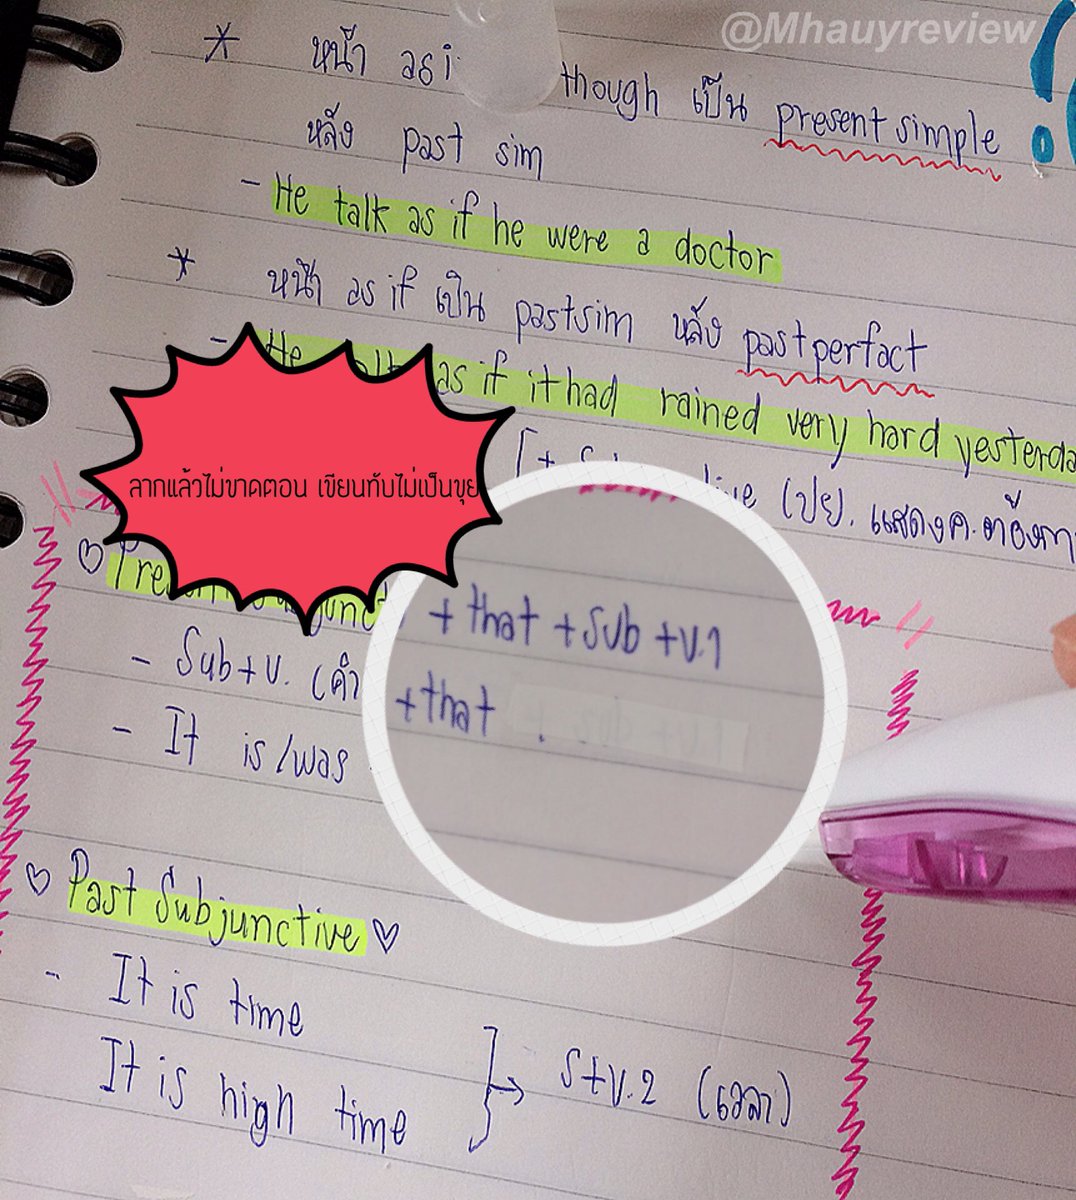 @Mhauyreview
* หน้า as i though เป็น present simple
หลัง past sim
- He talk as if he were a doctor
* หน้า as if เป็น pastsim หลัง past perfect
- He as if it had rained very hard yesterda
ลากแล้วไม่ขาดตอน เขียนทับไม่เป็นขุย
(ปย. แสดงค.ต้องกา
+ that + Sub + v.1
- Sub + v. (คำ
+ that
- It is/was
Past Subjunctive
- It is time
It is high time
S + v.2 (เวลา)